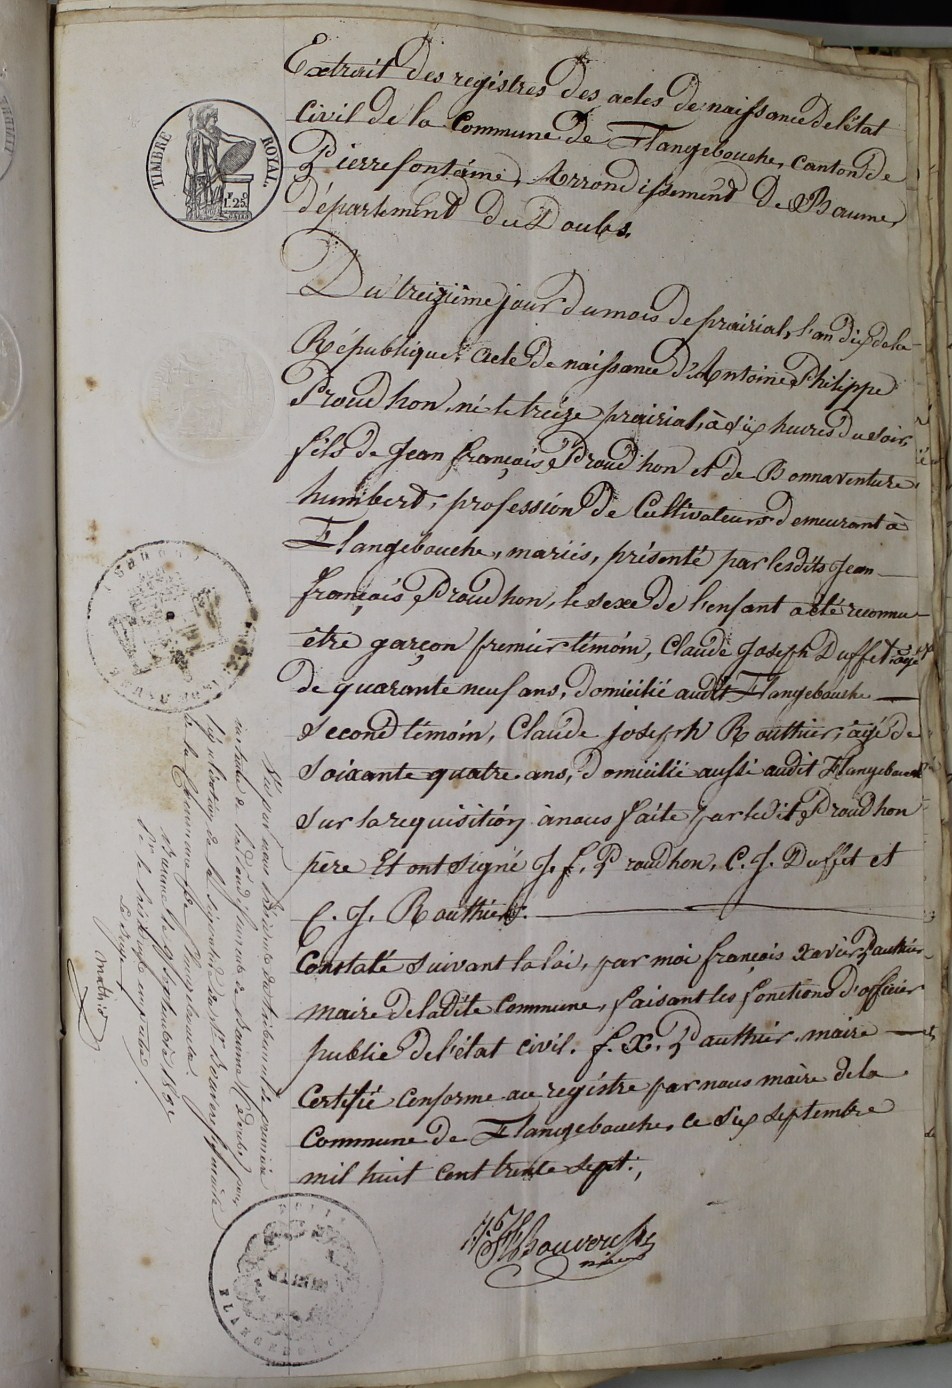 Extrait des registres des actes de naissance de l'état
Civil de la Commune de Flangebouche, canton de
Pierrefontaine, Arrondissement de Baume,
département du Doubs.
TIMBRE ROYAL
1.25
Du treizième jour du mois de prairial, l'an dix de la
République, acte de naissance d'Antoine Philippe
Proudhon, né le treize prairial, à six heures du soir,
fils de Jean françois Proudhon et de Bonnaventure
humbert, profession de Cultivateurs demeurant à
Flangebouche, mariés, présenté par lesdits Jean
françois Proudhon, le sexe de l'enfant a été reconnu
être garçon premier témoin, Claude Joseph Duffet âgé
de quarante neuf ans, domicilié audit Flangebouche
second témoin, Claude joseph Routhier, âgé de
soixante quatre ans, domicilié aussi audit Flangebouche
sur la requisition à nous faite par ledit Proudhon
père Et ont signé J. f. Proudhon, C. J. Duffet et
C. J. Routhier.
Constaté suivant la loi, par moi françois xavier Pauthier
maire de ladite Commune, faisant les fonctions d'officier
public de l'état civil. f. X. Pauthier, maire
Certifié conforme au registre par nous maire de la
Commune de Flangebouche, ce six septembre
mil huit cent trente sept.,
maire
Vu par nous Président du tribunal de première
instance de Baume (Doubs) pour
légalisation de la signature du Sr
de la Commune de Flangebouche.
Baume le 9 septembre 1837
FLANGEBOUCHE